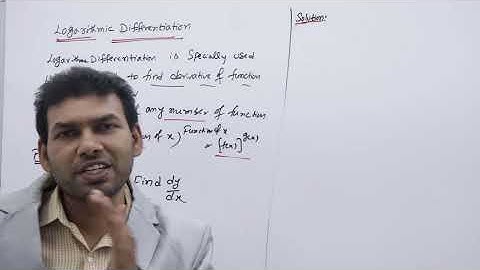 Logarithmic Differentiation
Logarithmic Differentiation is specially used
to find derivative of function
any number of function
of x) Function of x or [f(x)]^g(x)
Find dy/dx
Solution: